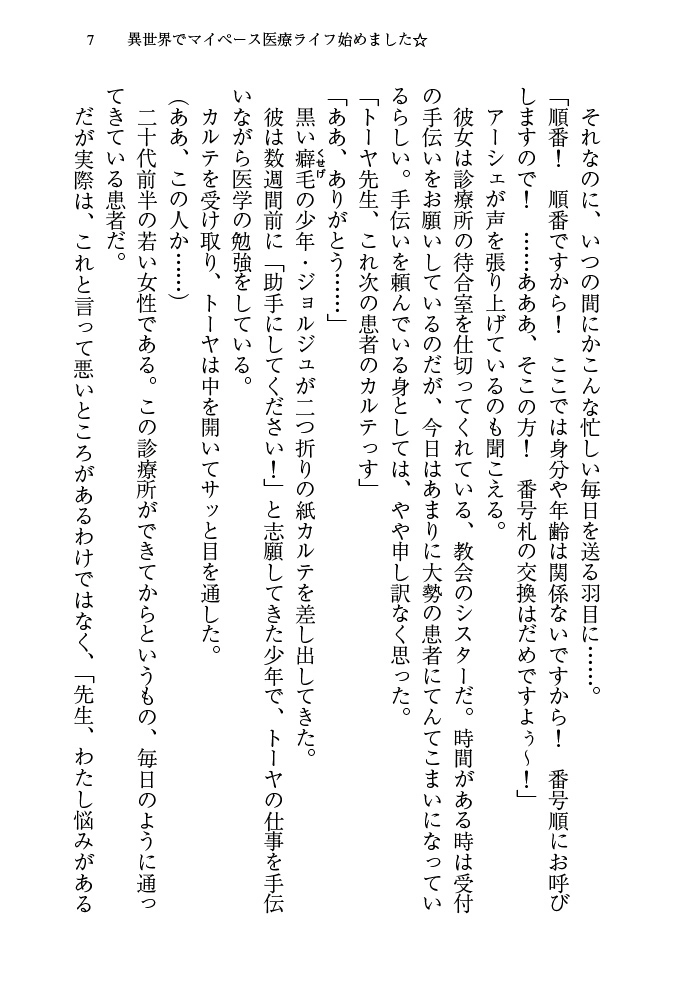 7　異世界でマイペース医療ライフ始めました☆
それなのに、いつの間にかこんな忙しい毎日を送る羽目に……。
「順番！　順番ですから！　ここでは身分や年齢は関係ないですから！　番号順にお呼び
しますので！　……あああ、そこの方！　番号札の交換はだめですよぅ～！」
アーシェが声を張り上げているのも聞こえる。
彼女は診療所の待合室を仕切ってくれている、教会のシスターだ。時間がある時は受付
の手伝いをお願いしているのだが、今日はあまりに大勢の患者にてんてこまいになってい
るらしい。手伝いを頼んでいる身としては、やや申し訳なく思った。
「トーヤ先生、これ次の患者のカルテっす」
「ああ、ありがとう……」
黒い癖毛くせげの少年・ジョルジュが二つ折りの紙カルテを差し出してきた。
彼は数週間前に「助手にしてください！」と志願してきた少年で、トーヤの仕事を手伝
いながら医学の勉強をしている。
カルテを受け取り、トーヤは中を開いてサッと目を通した。
（ああ、この人か……）
二十代前半の若い女性である。この診療所ができてからというもの、毎日のように通っ
てきている患者だ。
だが実際は、これと言って悪いところがあるわけではなく、「先生、わたし悩みがある